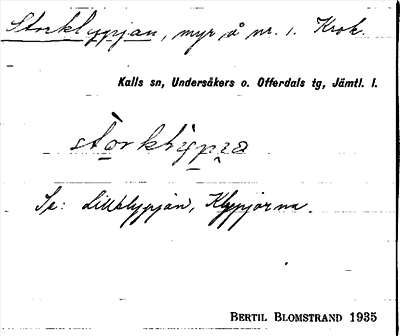 Storklyppjan, myr å nr. 1. Krok.
Kalls sn, Undersåkers o. Offerdals tg, Jämtl. l.
Se: Lillklyppjan, Klyppjorna.
BERTIL BLOMSTRAND 1935